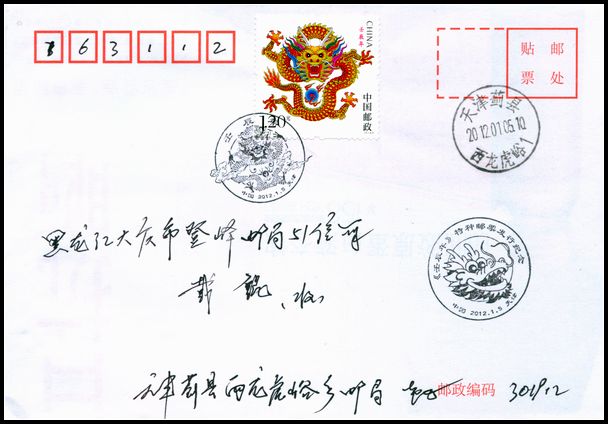 163112
CHINA
壬辰年
中国邮政
1.20
贴 邮
票 处
壬辰
中国 2012.1.5 天津
天津蓟县
2012.01.05.10
西龙虎峪1
《壬辰年》特种邮票发行纪念
中国 2012.1.5 天津
黑龙江大庆市登峰邮局51信箱
戴 收
天津蓟县西龙虎峪乡邮局
邮政编码 301912